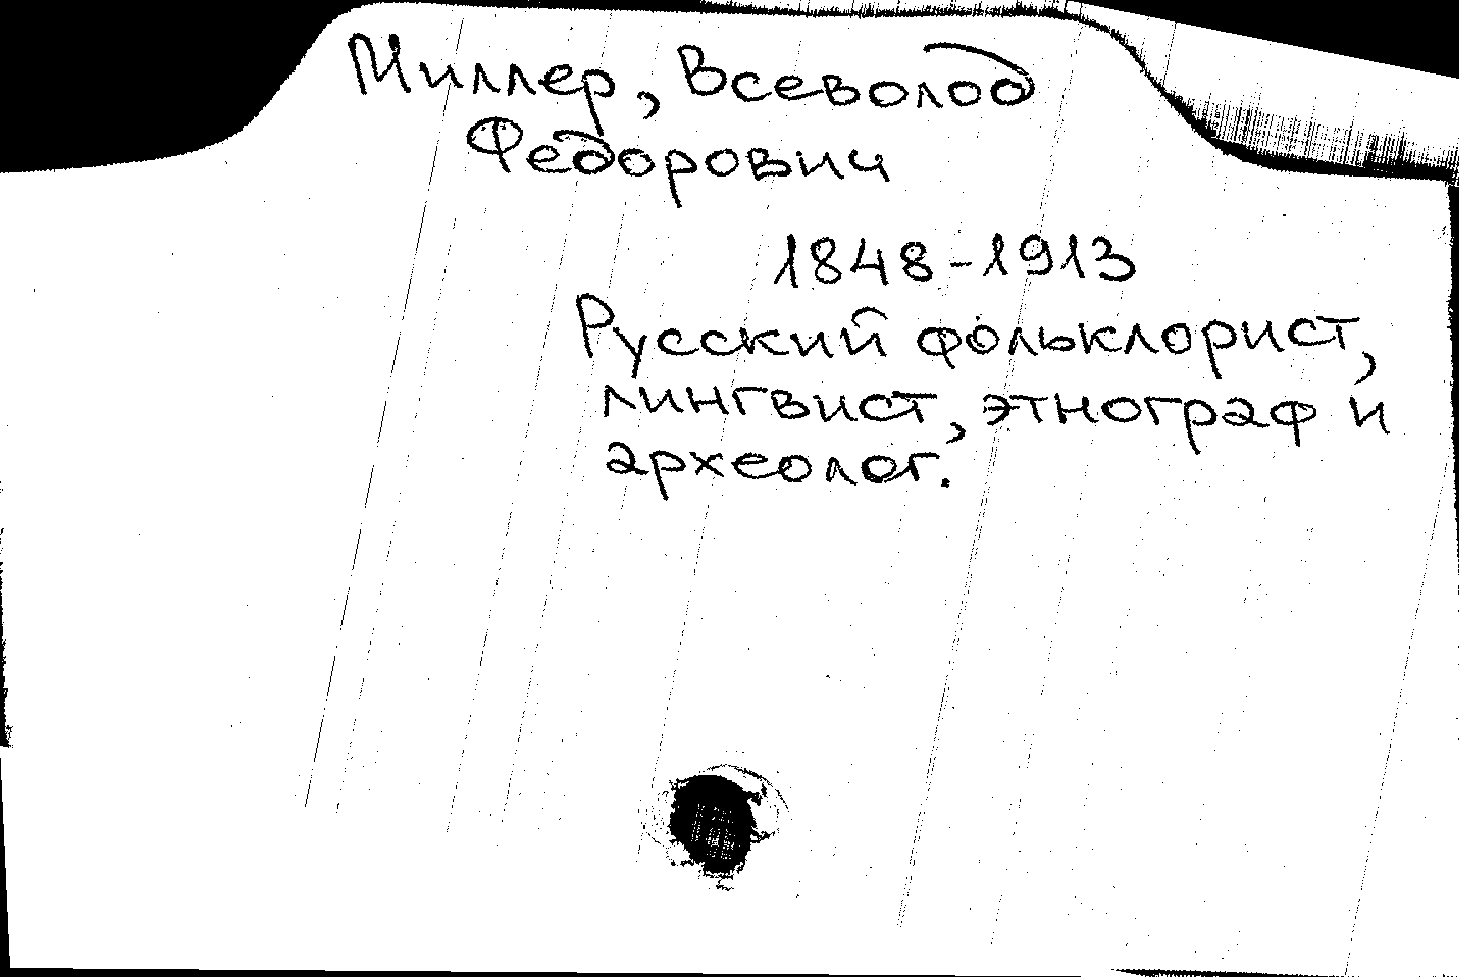 Миллер, Всеволод
Федорович
1848-1913
Русский фольклорист,
лингвист, этнограф и
археолог.